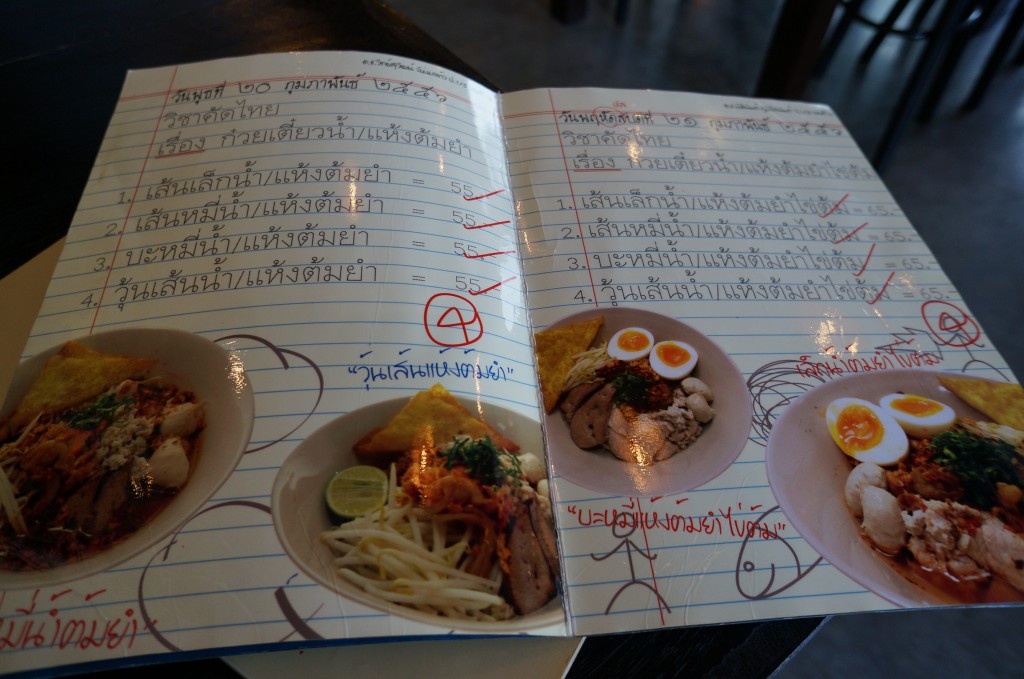 วันพุธที่ ๒๐ กุมภาพันธ์ ๒๕๕๖
วิชาคัดไทย
เรื่อง ก๋วยเตี๋ยวน้ำ/แห้งต้มยำ
1. เส้นเล็กน้ำ/แห้งต้มยำ = 55
2. เส้นหมี่น้ำ/แห้งต้มยำ = 55
3. บะหมี่น้ำ/แห้งต้มยำ = 55
4. วุ้นเส้นน้ำ/แห้งต้มยำ = 55
"วุ้นเส้นแห้งต้มยำ"
หมี่น้ำต้มยำ"
วันพฤหัสบดีที่ ๒๑ กุมภาพันธ์ ๒๕๕๖
วิชาคัดไทย
เรื่อง ก๋วยเตี๋ยวน้ำ/แห้งต้มยำไข่ต้ม
1. เส้นเล็กน้ำ/แห้งต้มยำไข่ต้ม = 65.-
2. เส้นหมี่น้ำ/แห้งต้มยำไข่ต้ม = 65.-
3. บะหมี่น้ำ/แห้งต้มยำไข่ต้ม = 65.-
4. วุ้นเส้นน้ำ/แห้งต้มยำไข่ต้ม = 65.-
เล็กน้ำต้มยำไข่ต้ม
"บะหมี่แห้งต้มยำไข่ต้ม"